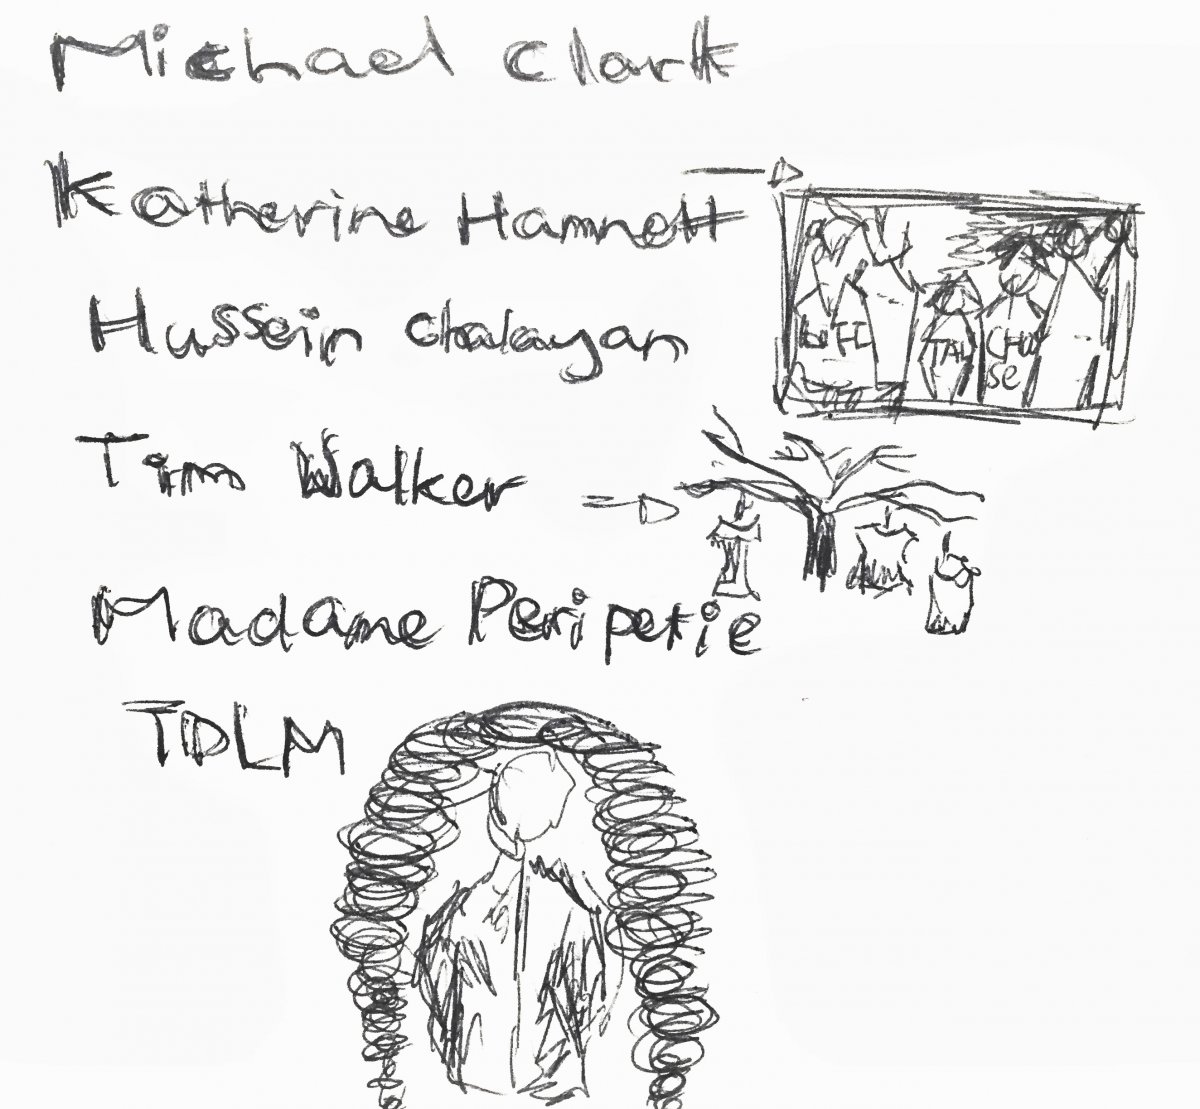 Michael Clark
Katherine Hamnett
Hussein Chalayan
Tim Walker
Madame Peripetie
TDLM
TAL
CHO
SE